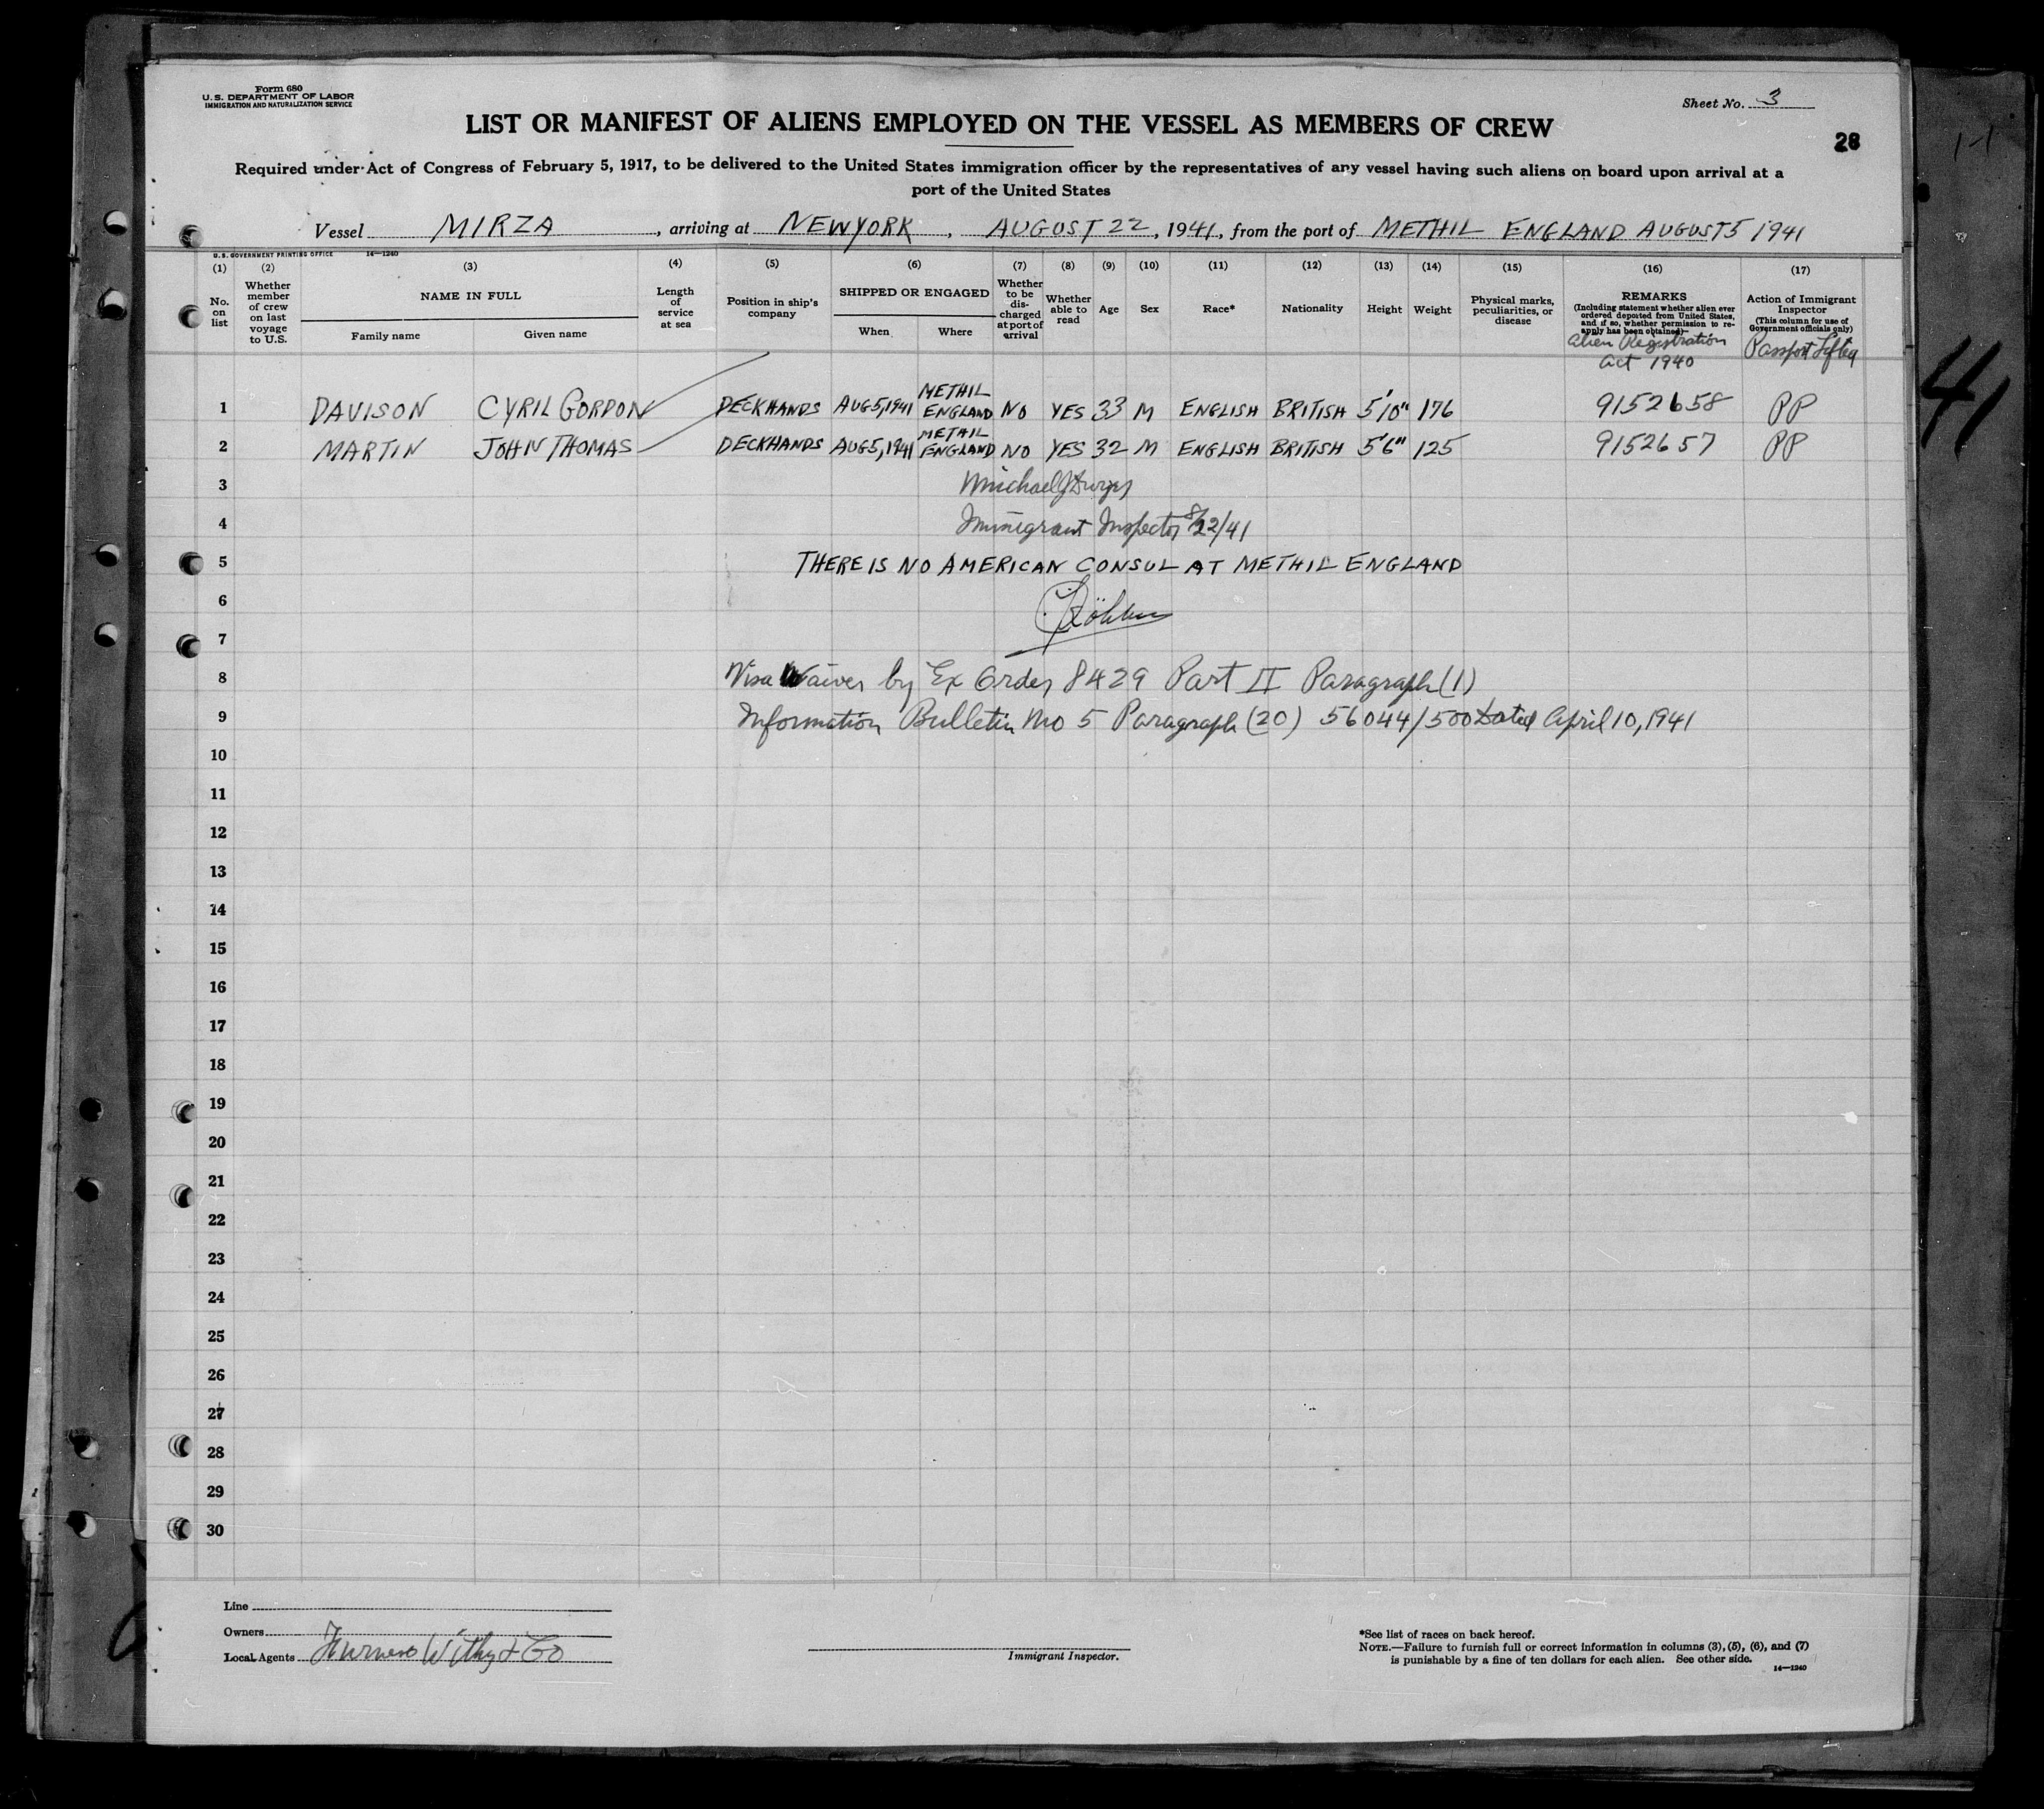 Form 680
U. S. DEPARTMENT OF LABOR
IMMIGRATION AND NATURALIZATION SERVICE
Sheet No. 3
LIST OR MANIFEST OF ALIENS EMPLOYED ON THE VESSEL AS MEMBERS OF CREW
28
Required under Act of Congress of February 5, 1917, to be delivered to the United States immigration officer by the representatives of any vessel having such aliens on board upon arrival at a
port of the United States
Vessel MIRZA, arriving at NEWYORK, AUGUST 22, 1941, from the port of METHIL ENGLAND AUGUST 5 1941
U. S. GOVERNMENT PRINTING OFFICE 14—1240
(1) (2) (3) (4) (5) (6) (7) (8) (9) (10) (11) (12) (13) (14) (15) (16) (17)
No. on list
Whether member of crew on last voyage to U.S.
NAME IN FULL
Family name
Given name
Length of service at sea
Position in ship's company
SHIPPED OR ENGAGED
When
Where
Whether to be discharged at port of arrival
Whether able to read
Age
Sex
Race*
Nationality
Height
Weight
Physical marks, peculiarities, or disease
REMARKS
(Including statement whether alien ever ordered deported from United States, and if so, whether permission to re-apply has been obtained)
Alien Registration
Act 1940
Action of Immigrant Inspector
(This column for use of Government officials only)
Passport Lifted
1 DAVISON CYRIL GORDON DECKHANDS AUG 5, 1941 METHIL ENGLAND NO YES 33 M ENGLISH BRITISH 5'10" 176 9152658 PP
2 MARTIN JOHN THOMAS DECKHANDS AUG 5, 1941 METHIL ENGLAND NO YES 32 M ENGLISH BRITISH 5'6" 125 9152657 PP
3 Michael J Dwyer
4 Immigrant Inspector 8/22/41
5 THERE IS NO AMERICAN CONSUL AT METHIL ENGLAND
6
7
8 Visa Waiver by Ex Order 8429 Part II Paragraph (1)
9 Information Bulletin No 5 Paragraph (20) 56044/500 Dated April 10, 1941
10
11
12
13
14
15
16
17
18
19
20
21
22
23
24
25
26
27
28
29
30
41
Line
Owners
Local Agents Furness Withy & Co
Immigrant Inspector.
*See list of races on back hereof.
NOTE.—Failure to furnish full or correct information in columns (3), (5), (6), and (7)
is punishable by a fine of ten dollars for each alien. See other side.
14—1240